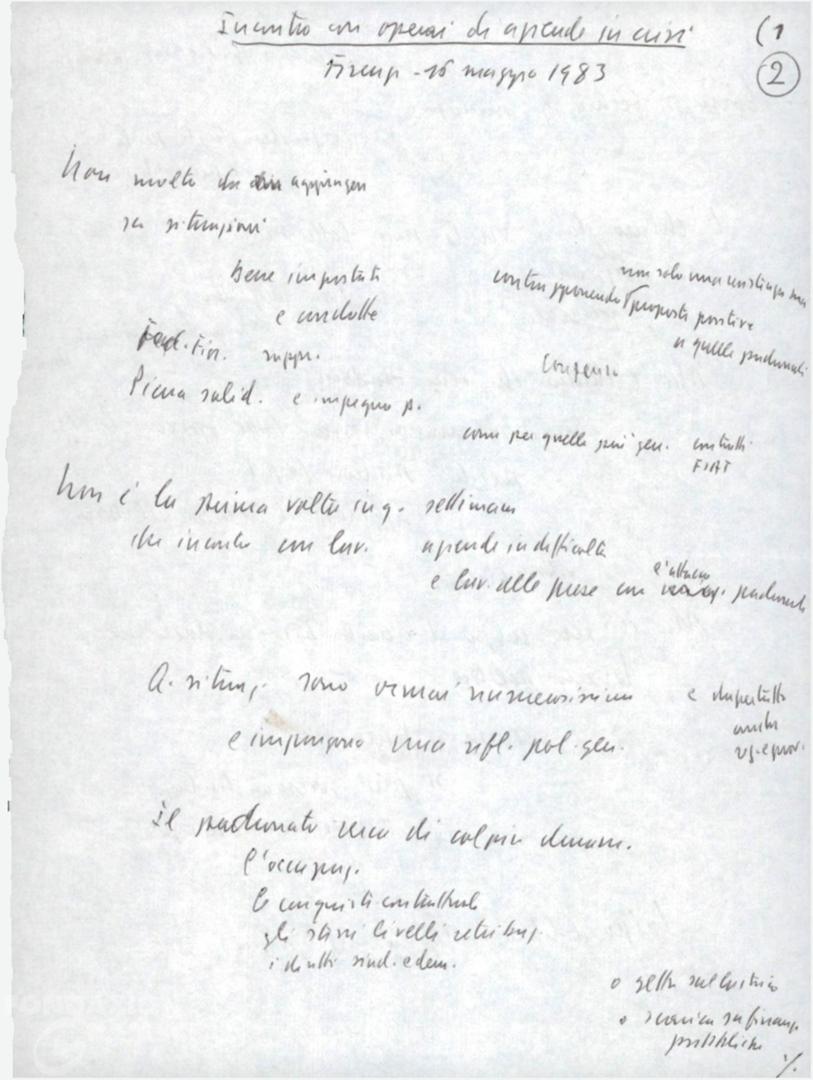 Incontro con operai di aziende in crisi (1
Firenze - 16 maggio 1983 2
Non molto da aggiungere
su situazioni
Bene impostate
e condotte
contrapponendo non solo una resistenza ma
proposte positive
a quelle padronali
Fed. Fior. suppr.
Consenso
Piena solid. e impegno p.
come per quelle più gen. contratti
FIAT
Non è la prima volta in q. settimane
che incontro con lav. aziende in difficoltà
e lav. alle prese con l'attacco padronale
Q. situaz. sono ormai numerosissime e dapertutto
anche
e impongono una rifl. pol. gen.
Il padronato cerca di colpire duram.
l'occupaz.
le conquiste contrattuali
gli stessi livelli retribuz.
i diritti sind. e dem.
o getta sul lastrico
o scarica su finanze
pubbliche
./.